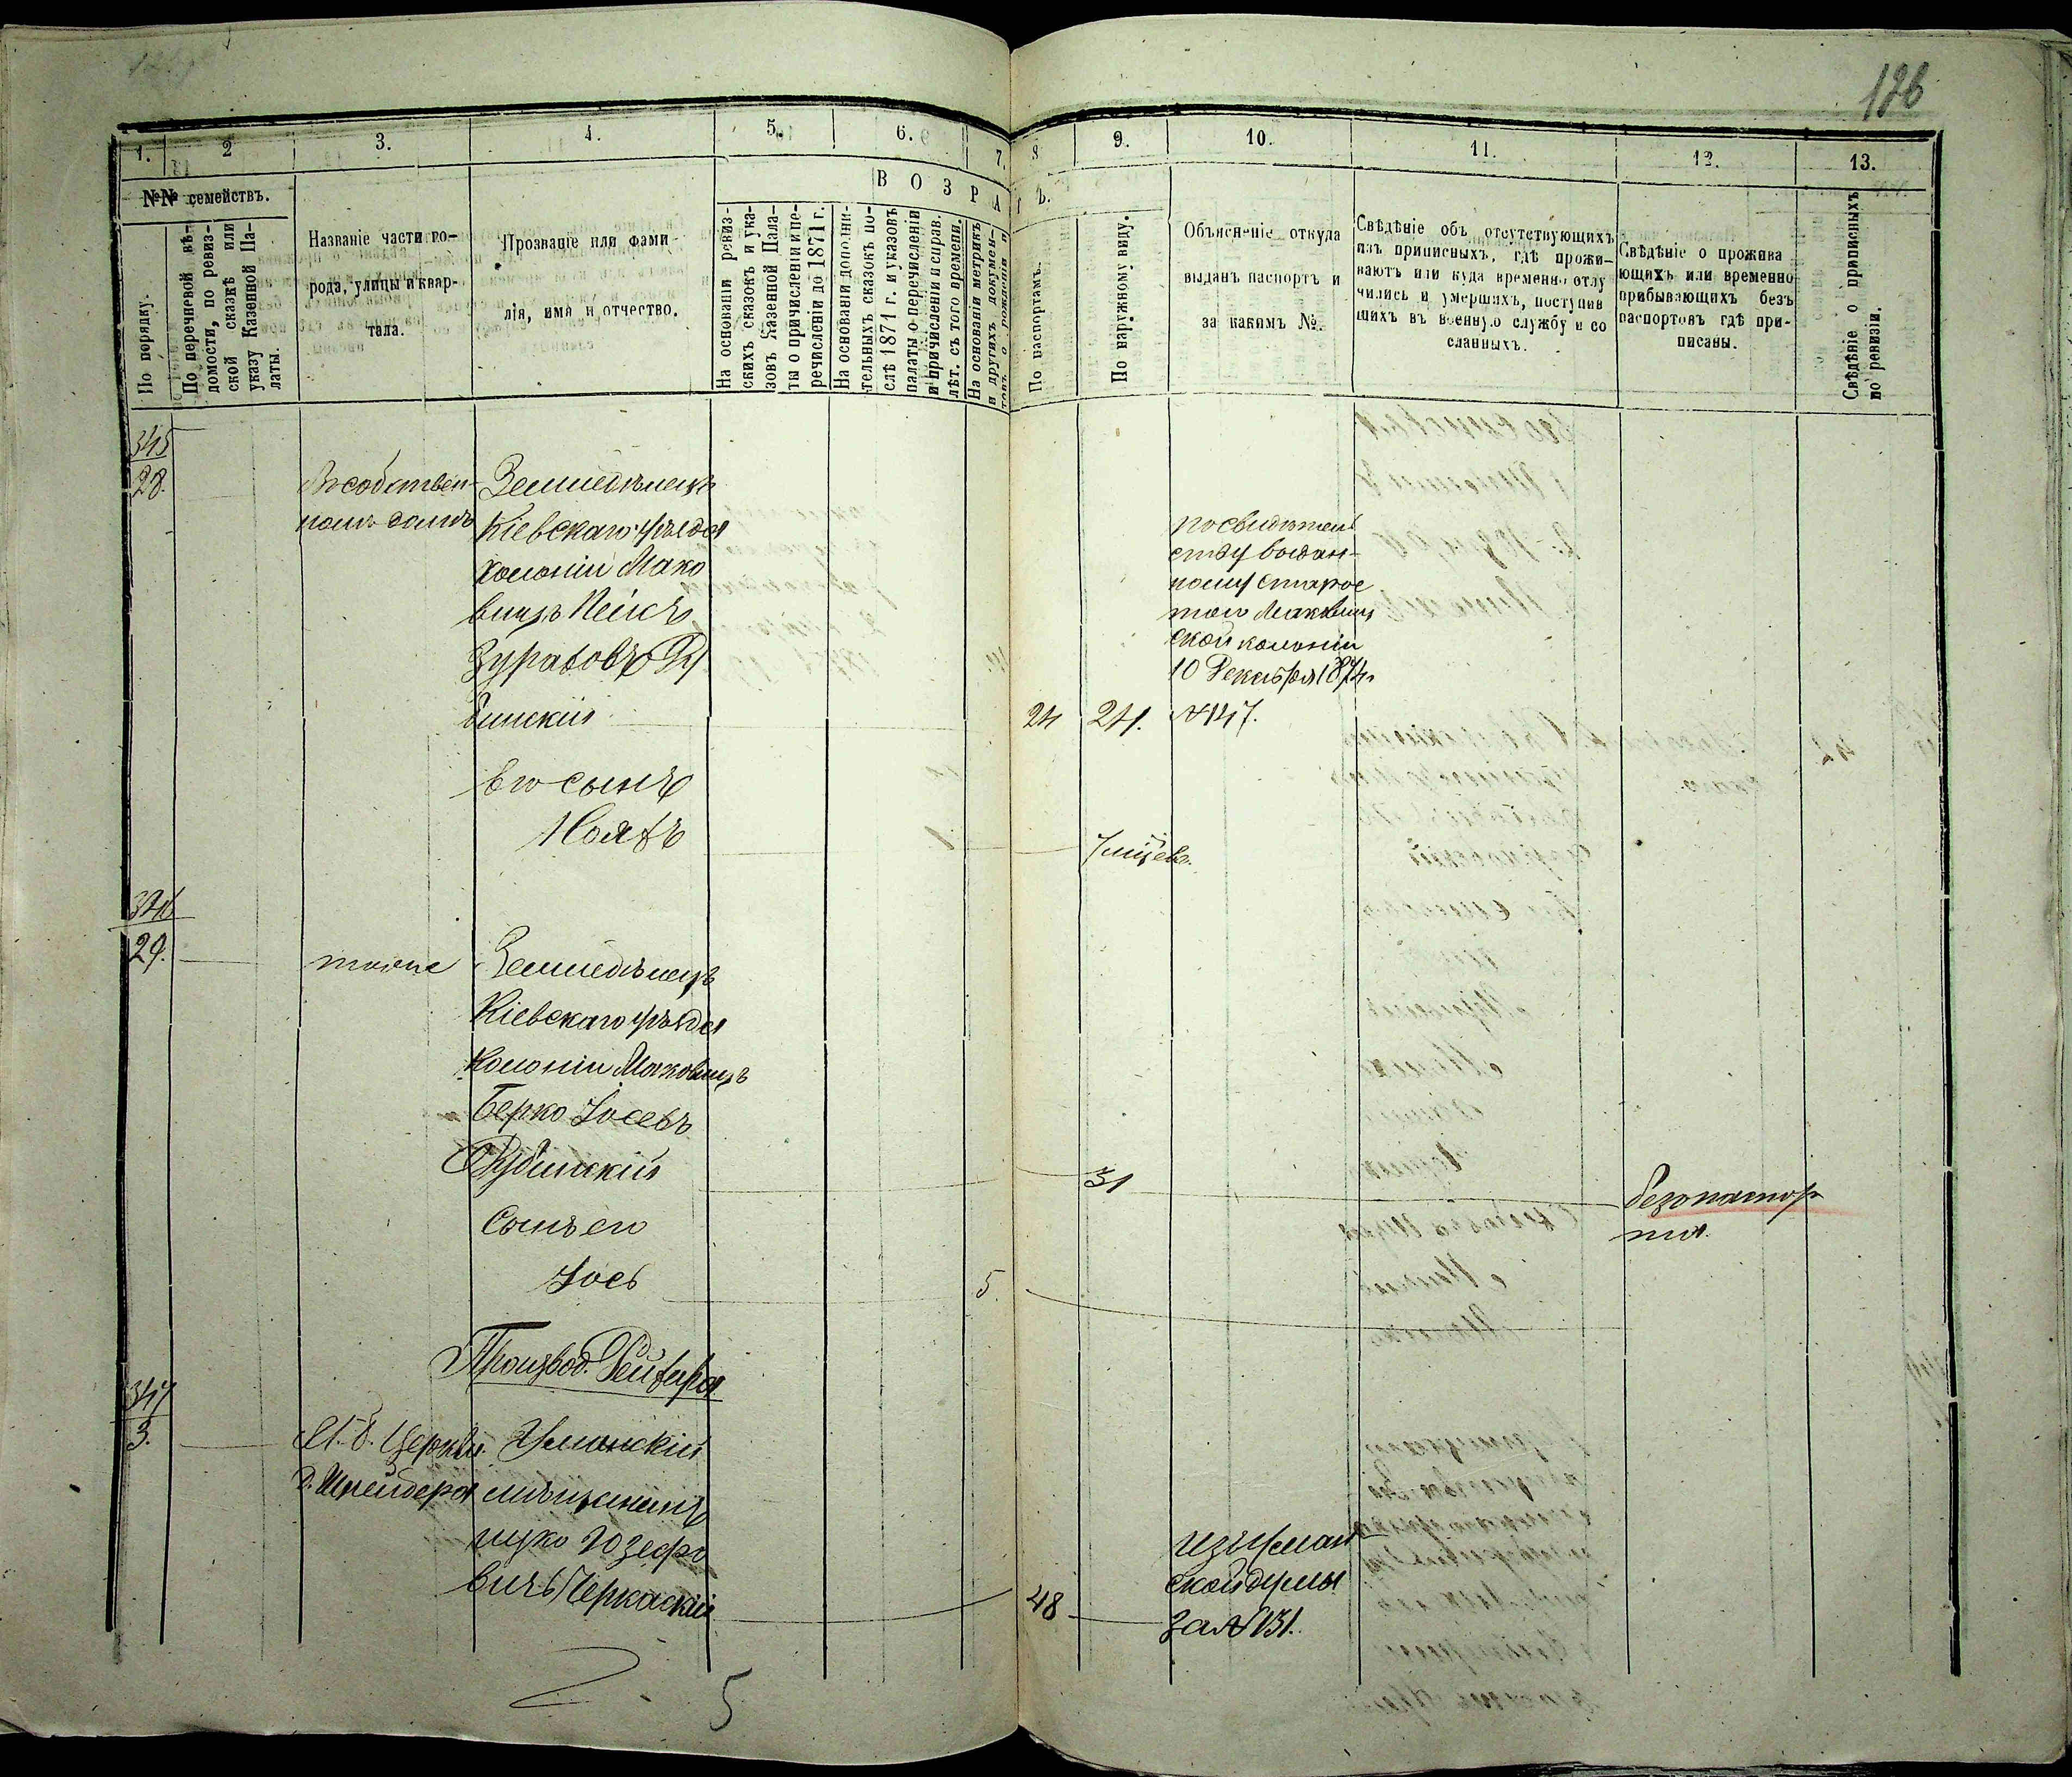 126
1. 2 3. 4. 5. 6. 7. 8 9. 10. 11. 12. 13.
№№ семействъ.
По порядку.
По перечневой вѣ-
домости, по ревиз-
ской сказкѣ или
указу Казенной Па-
латы.
Названіе части го-
рода, улицы и квар-
тала.
Прозваніе или фами-
лія, имя и отчество.
ВОЗРАСТЪ.
На основаніи ревиз-
скихъ сказокъ и ука-
зовъ Казенной Пала-
ты о причисленіи и пе-
речисленіи до 1871 г.
На основаніи дополни-
тельныхъ сказокъ по-
слѣ 1871 г. и указовъ
палаты о перечисленіи
и причисленіи и справ.
лѣт. съ того времени.
На основаніи метрикъ
и другихъ докумен-
товъ о рожденіи
По паспортамъ.
По наружному виду.
Объясненіе откуда
выданъ паспортъ и
за какимъ №.
Свѣдѣніе объ отсутствующихъ
изъ приписныхъ, гдѣ прожи-
ваютъ или куда временно отлу
чились и умершихъ, поступив
шихъ въ военную службу и со
сланныхъ.
Свѣдѣніе о прожива
ющихъ или временно
прибывающихъ безъ
паспортовъ гдѣ при-
писаны.
Свѣдѣніе о приписныхъ
по ревизіи.
345
28.
Въ собствен-
номъ домѣ
Земледѣлецъ
Кіевскаго уѣзда
колоніи Мако
вищъ Пейсъ
Зурахов Ру
бинскій
24 24.
по свидѣтель
ству выдан-
ному старос
той Маковищ
ской колоніи
10 Декабря 1874
№147.
Его сынъ
1
346
29.
тоже
Земледѣлецъ
Кіевскаго уѣзда
Колоніи Маковищъ
Берко Іосевъ
Рубинскій
31
безъ паспор
та.
Сынъ его
Іось
5.
Произвол. Рейфира
347
3.
Б. Церкви.
д. Шнейдера
Уманскій
мѣщанинъ
Ицко Юзефо
вичъ Черкаскій
48
изъ Уман
ской думы
за №131.
5